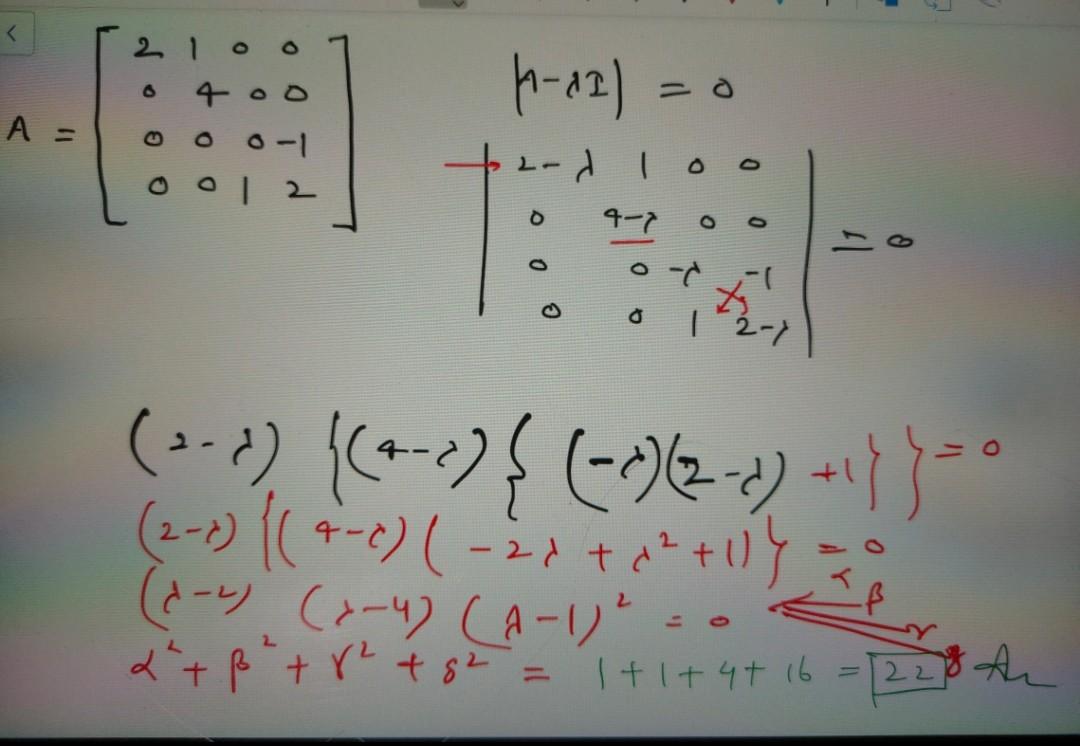 A = [ 2 1 0 0
0 4 0 0
0 0 0 -1
0 0 1 2 ]
|A-λI| = 0
| 2-λ 1 0 0
0 4-λ 0 0
0 0 -λ -1
0 0 1 2-λ | = 0
(2-λ) {(4-λ) { (-λ)(2-λ) +1 } } = 0
(2-λ) {( 4-λ) ( -2λ + λ² +1)} = 0
(λ-2) (λ-4) (λ-1)² = 0
α
β
γ
δ
α² + β² + γ² + δ² = 1+1+4+16 = 22 Ans